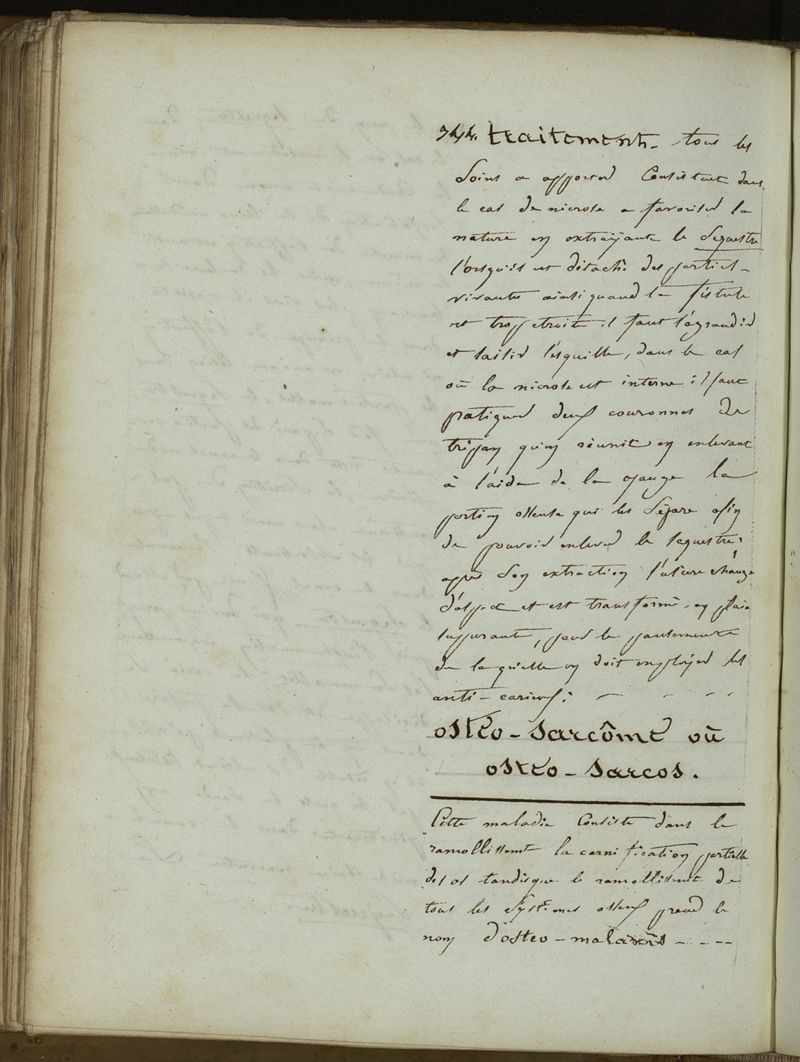 344. traitement - tous les
Soins a apporter Consistent dans
le cas de nicrose a favoriser la
nature en extrayant le Sequestre
l'orsqu'il est détaché des parties -
vivantes ainsi quand la fistule
est trop etroite il faut l'agrandir
et saisir l'ésquille, dans le cas
où la nicrose est interne il faut
patiquer deux couronnes de
trépan qu'on réunit en enlevant
à l'aide de la gouge la
portion osseuse qui les Sépare afin
de pouvoir enlever le sequestre;
après Son extraction l'ulcère change
d'aspect et est transformé en plaie
suppurante, pour le pansement
de laquelle on doit employer les
anti-carieux;
ostéo-sarcôme où
ostéo-sarcos.
Cette maladie Consiste dans le
ramollissemt la carnification partielle
des os tandisque le ramollissemt de
tous les Systêmes osseux prend le
nom d'ostéo-malaxis - - - -